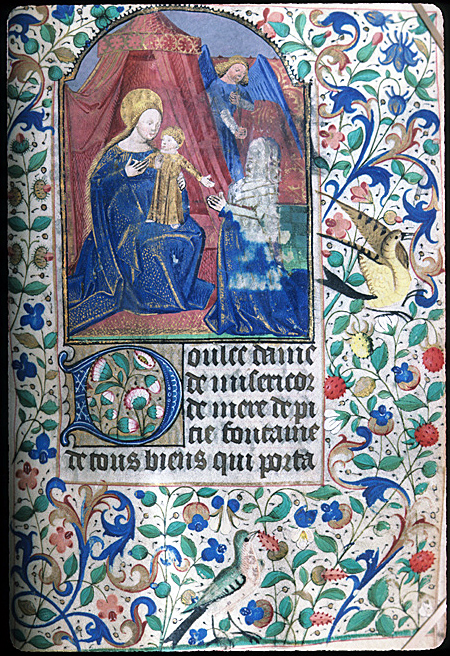 Doulce dame
de misericor
de mere de pi
tie fontaine
de tous biens qui porta